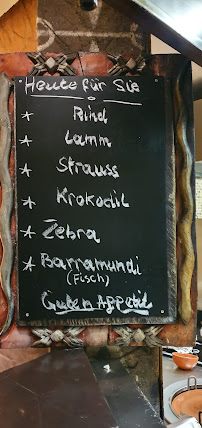 Heute für Sie
* Rind
* Lamm
* Strauss
* Krokodil
* Zebra
* Barramundi
(Fisch)
Guten Appetit